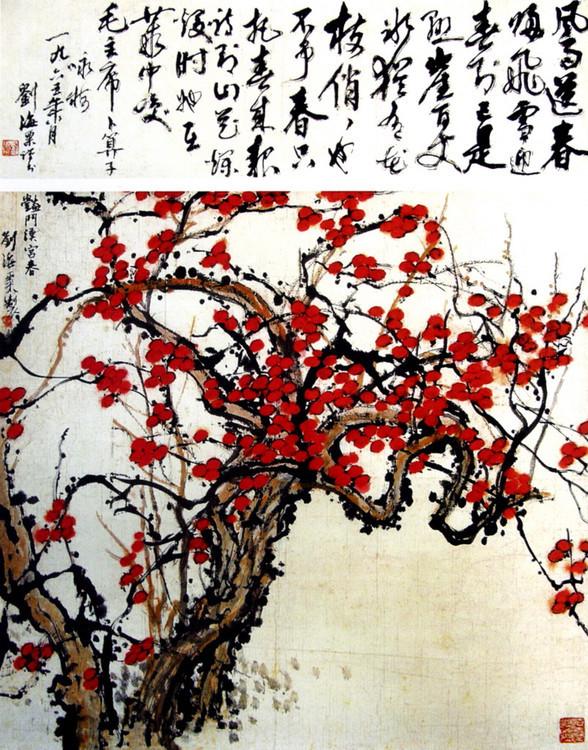 風雨送春
歸飛雪迎
春到已是
懸崖百丈
冰猶有花
枝俏〻也
不争春只
把春來報
待到山花爛
漫时她在
叢中笑
毛主席卜算子
咏梅
一九六五年月
劉海粟
豔鬥漢宮春
劉海粟